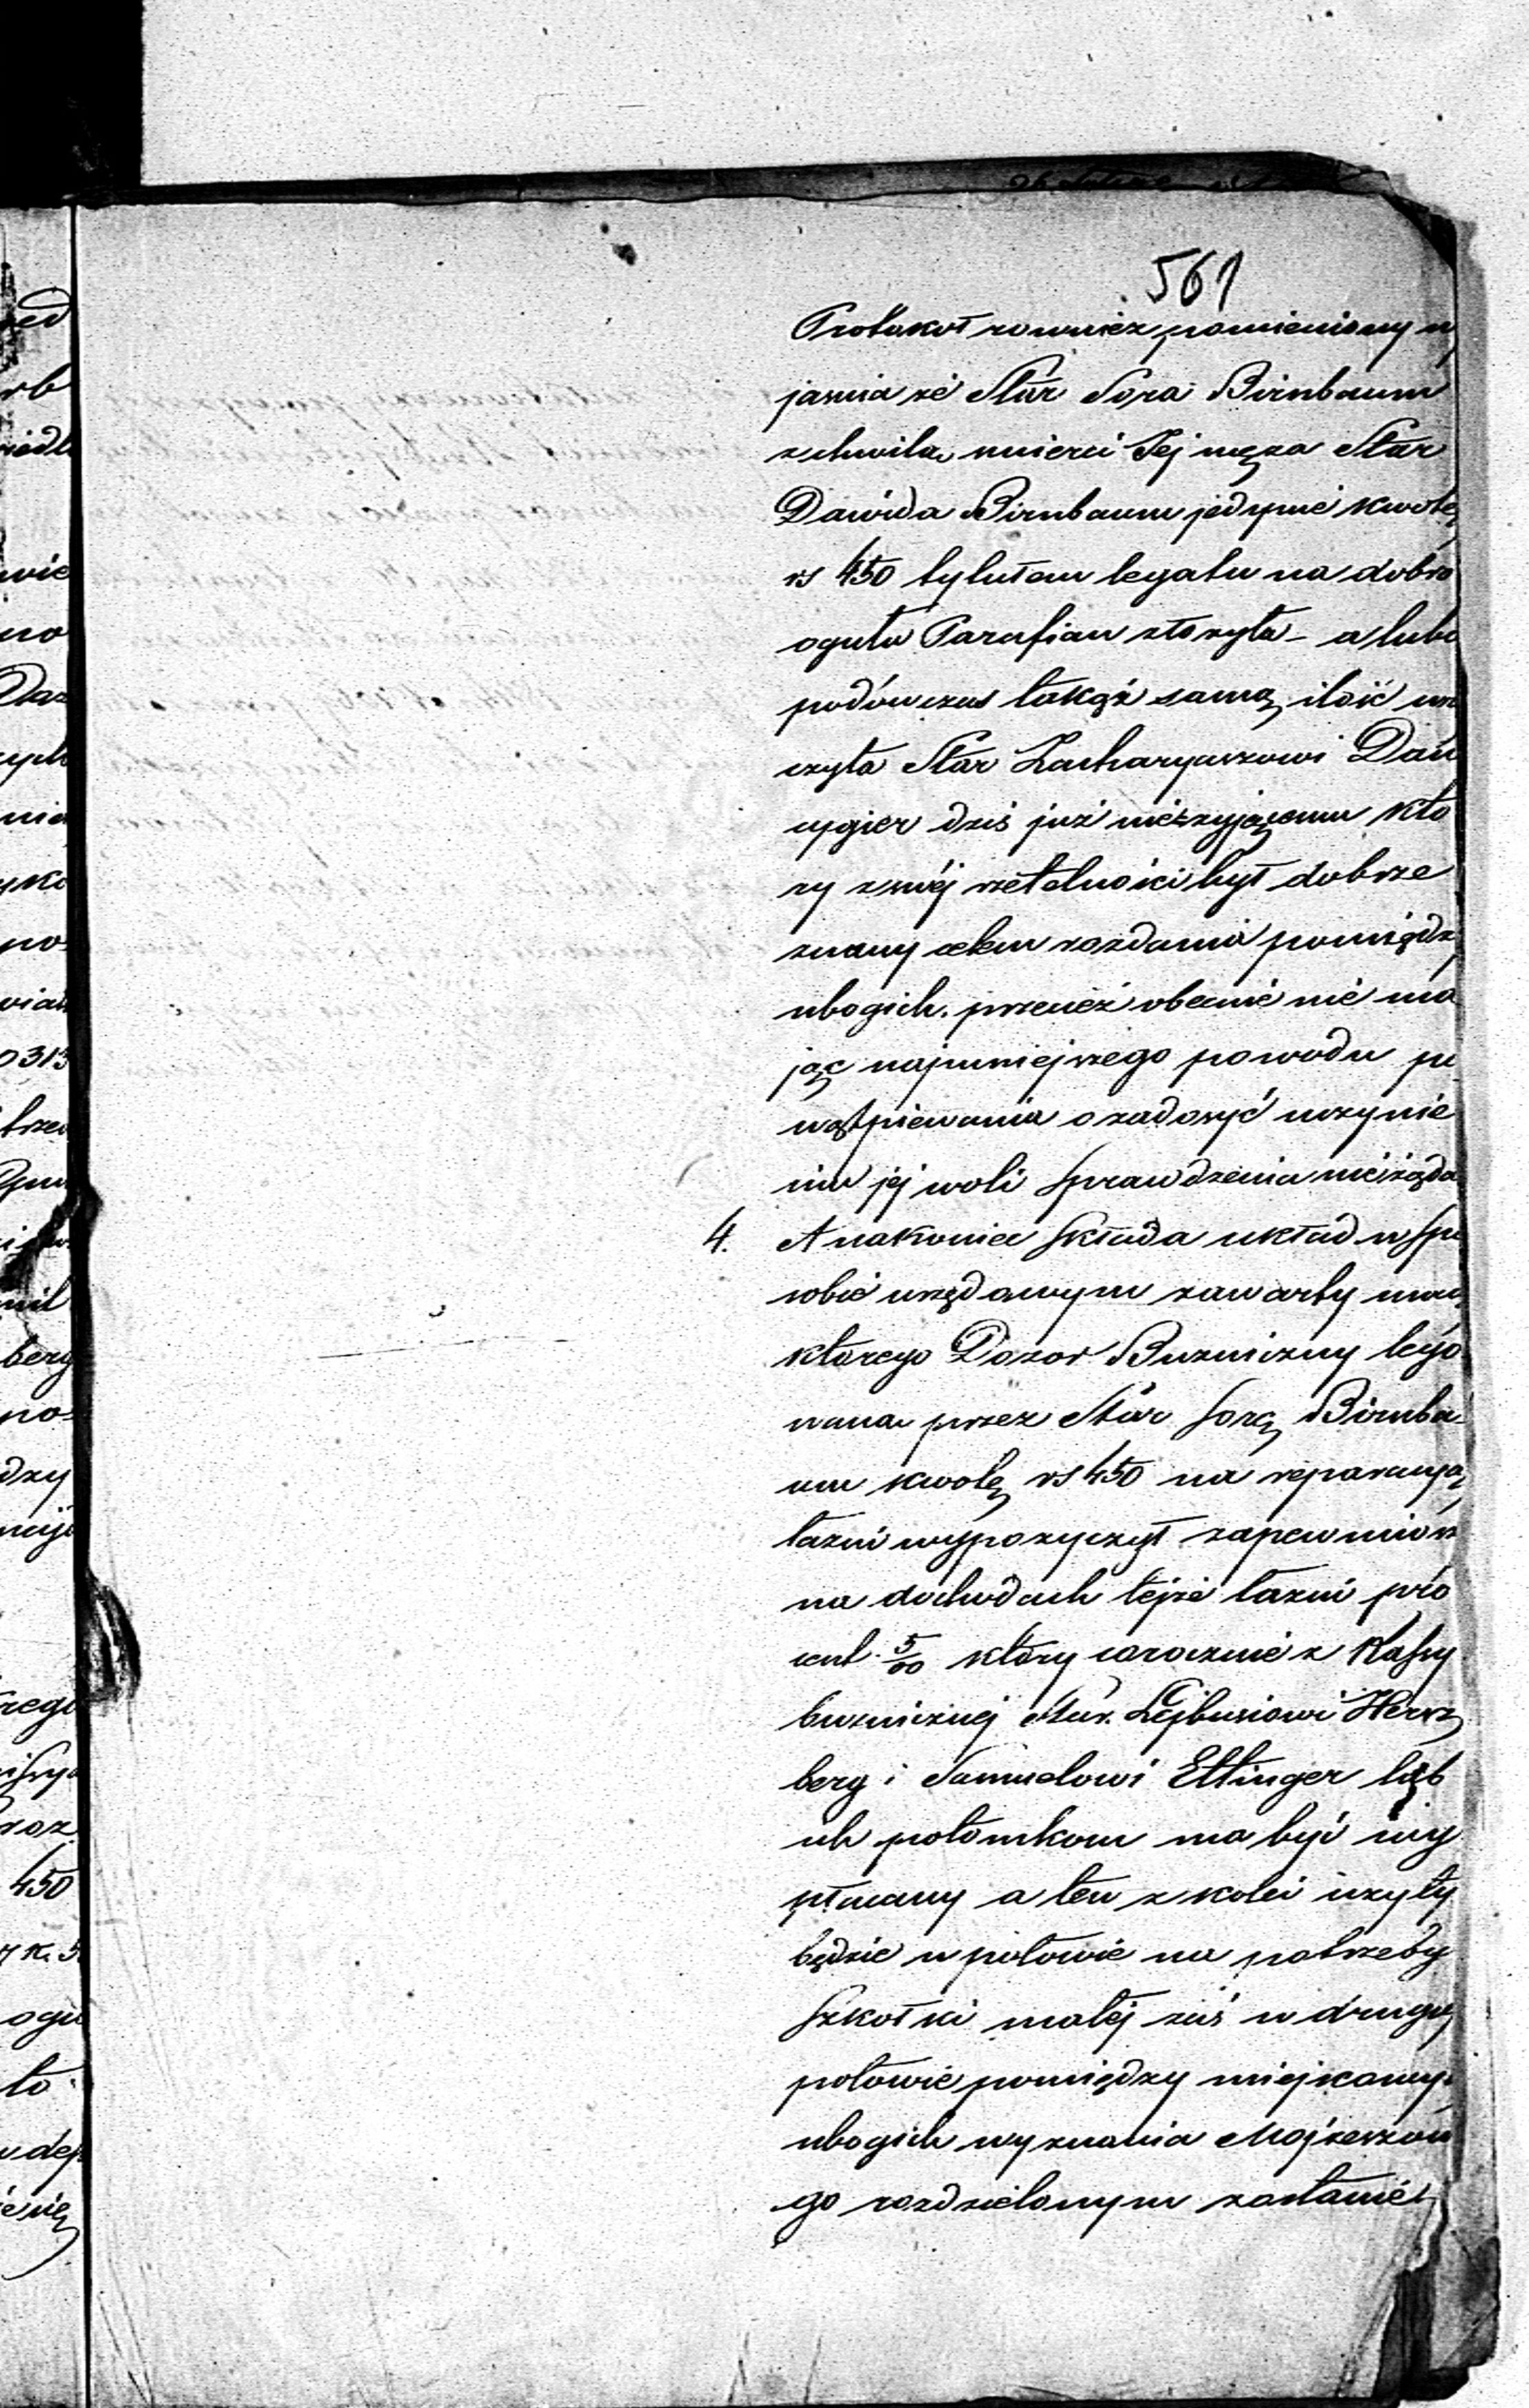 561
Protokoł rownież pomieniony w
jasnia że Star Sora Birnbaum
z chwila smierci Jej męża Star
Dawida Birnbaum jedynie kwotę
rs 450 tytułem legatu na dobro
ogułu Parafian złożyła – a lubo
podówczas takąż samą ilość wrę
czyła Star Zacharyaszowi Dan
cygier dziś już nieżyjącemu kto
ry z swéj rzetelności był dobrze
znany celem rozdania pomiędz
ubogich. przecież obecnie nie ma
jąc najmniejszego powodu po
wątpiewania o zadosyć uczynie
niu jéj woli sprawdzenia nieżąda
4. A nakoniec składa układ w spo
sobie urzędowym zawarty mocą
ktorego Dozor Buzniczny lego
wana przez Star Sorę Birnba-
um kwotę rs 450 na reparacyą
łazni wypożyczył zapewniwsz
na dochodach tejże łazni pro
cent. 5/00 który corocznie z Kassy
buzniczuej Star. Lejbusiowi Hersz
berg i Samuelowi Ettinger lub
ich potomkom ma być wy
płacany a ten z kolei użyty
będzie w połowie na potrzeby
Szkołki małéj zaś w drugiéj
połowie pomiędzy miejscowy
ubogich wyznania Mojżeszow
go rozdzielonym zostanie
ed
rb
iedl
wie
no
Daz
ych
nia
po
0313
trze
mil
berg
po
dzy
450
7 K. 5
ogu
to